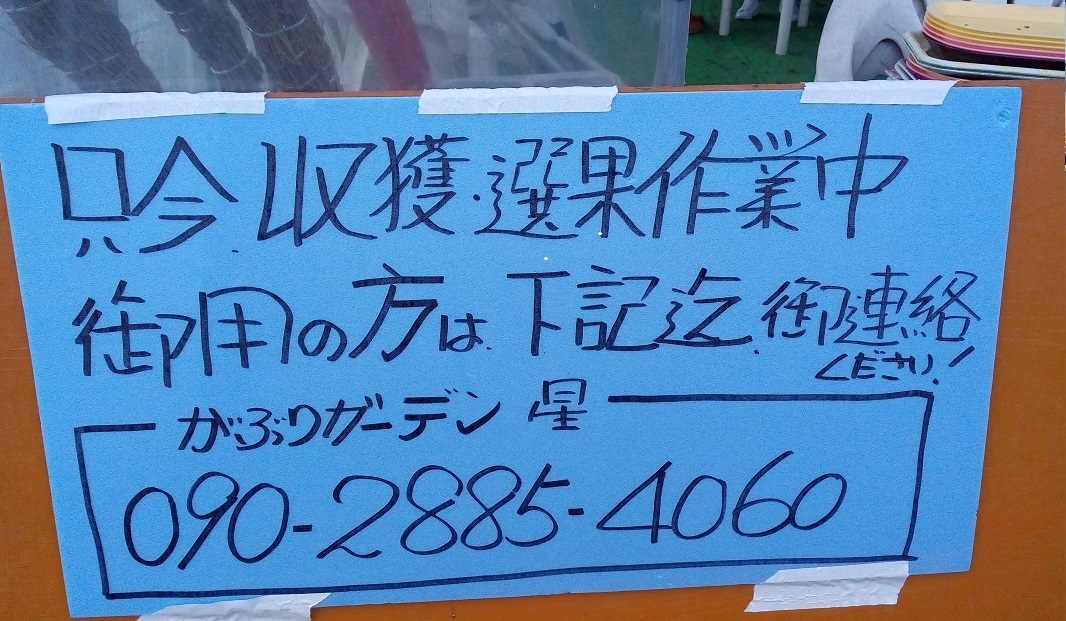 只今収獲・選果作業中
御用の方は、下記迄、御連絡
ください!
がぶりガーデン 星
090-2885-4060